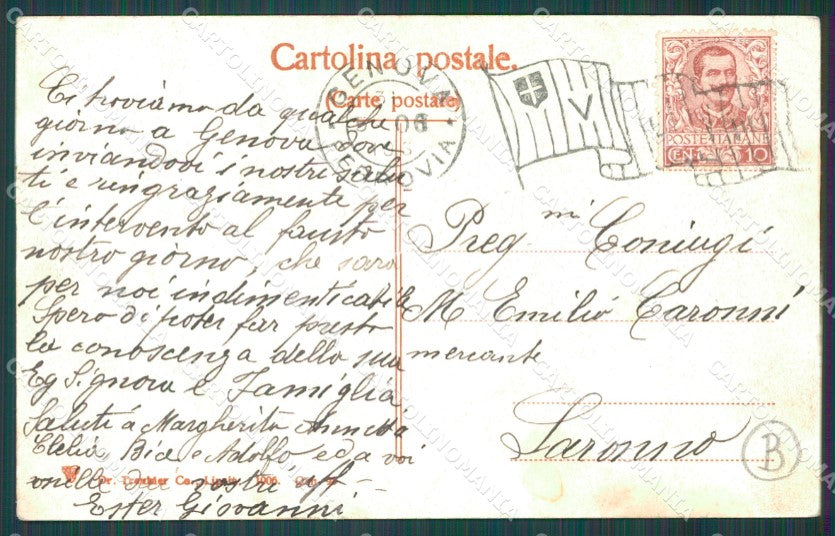 Cartolina postale.
(Carte postale)
GENOVA
06
FERROVIA
V
POSTE ITALIANE
CENT. 10
Ci troviamo da qualche
giorno a Genova dove
inviandovi i nostri salu
ti e ringraziamente per
l'intervento al fausto
nostro giorno, che sarà
per noi indimenticabile
Spero di poter far presto
la conoscenza della sua
Eg Signora e Famiglia
Saluti á Margherita
Clelia, Bice Adolfo ed a voi
mille dei nostri aff
Ester Giovanni
Preg mi Coniugi
M Emilio Caronni
mercante
Saronno
B
Dr. Trenkler Co., Lipsia. 1906.
CARTOLINOMANIA